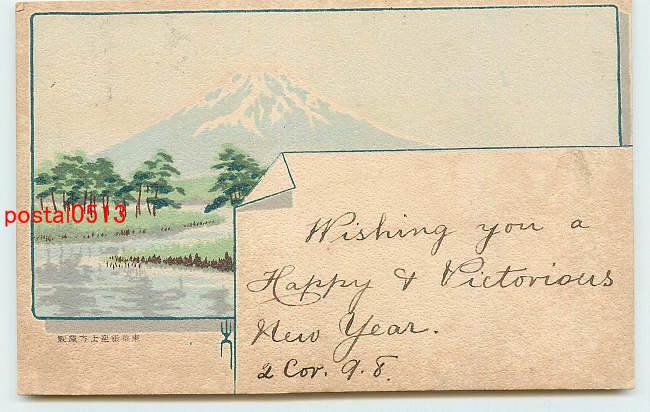 postal0513
Wishing you a
Happy & Victorious
New Year.
2 Cor. 9.8.